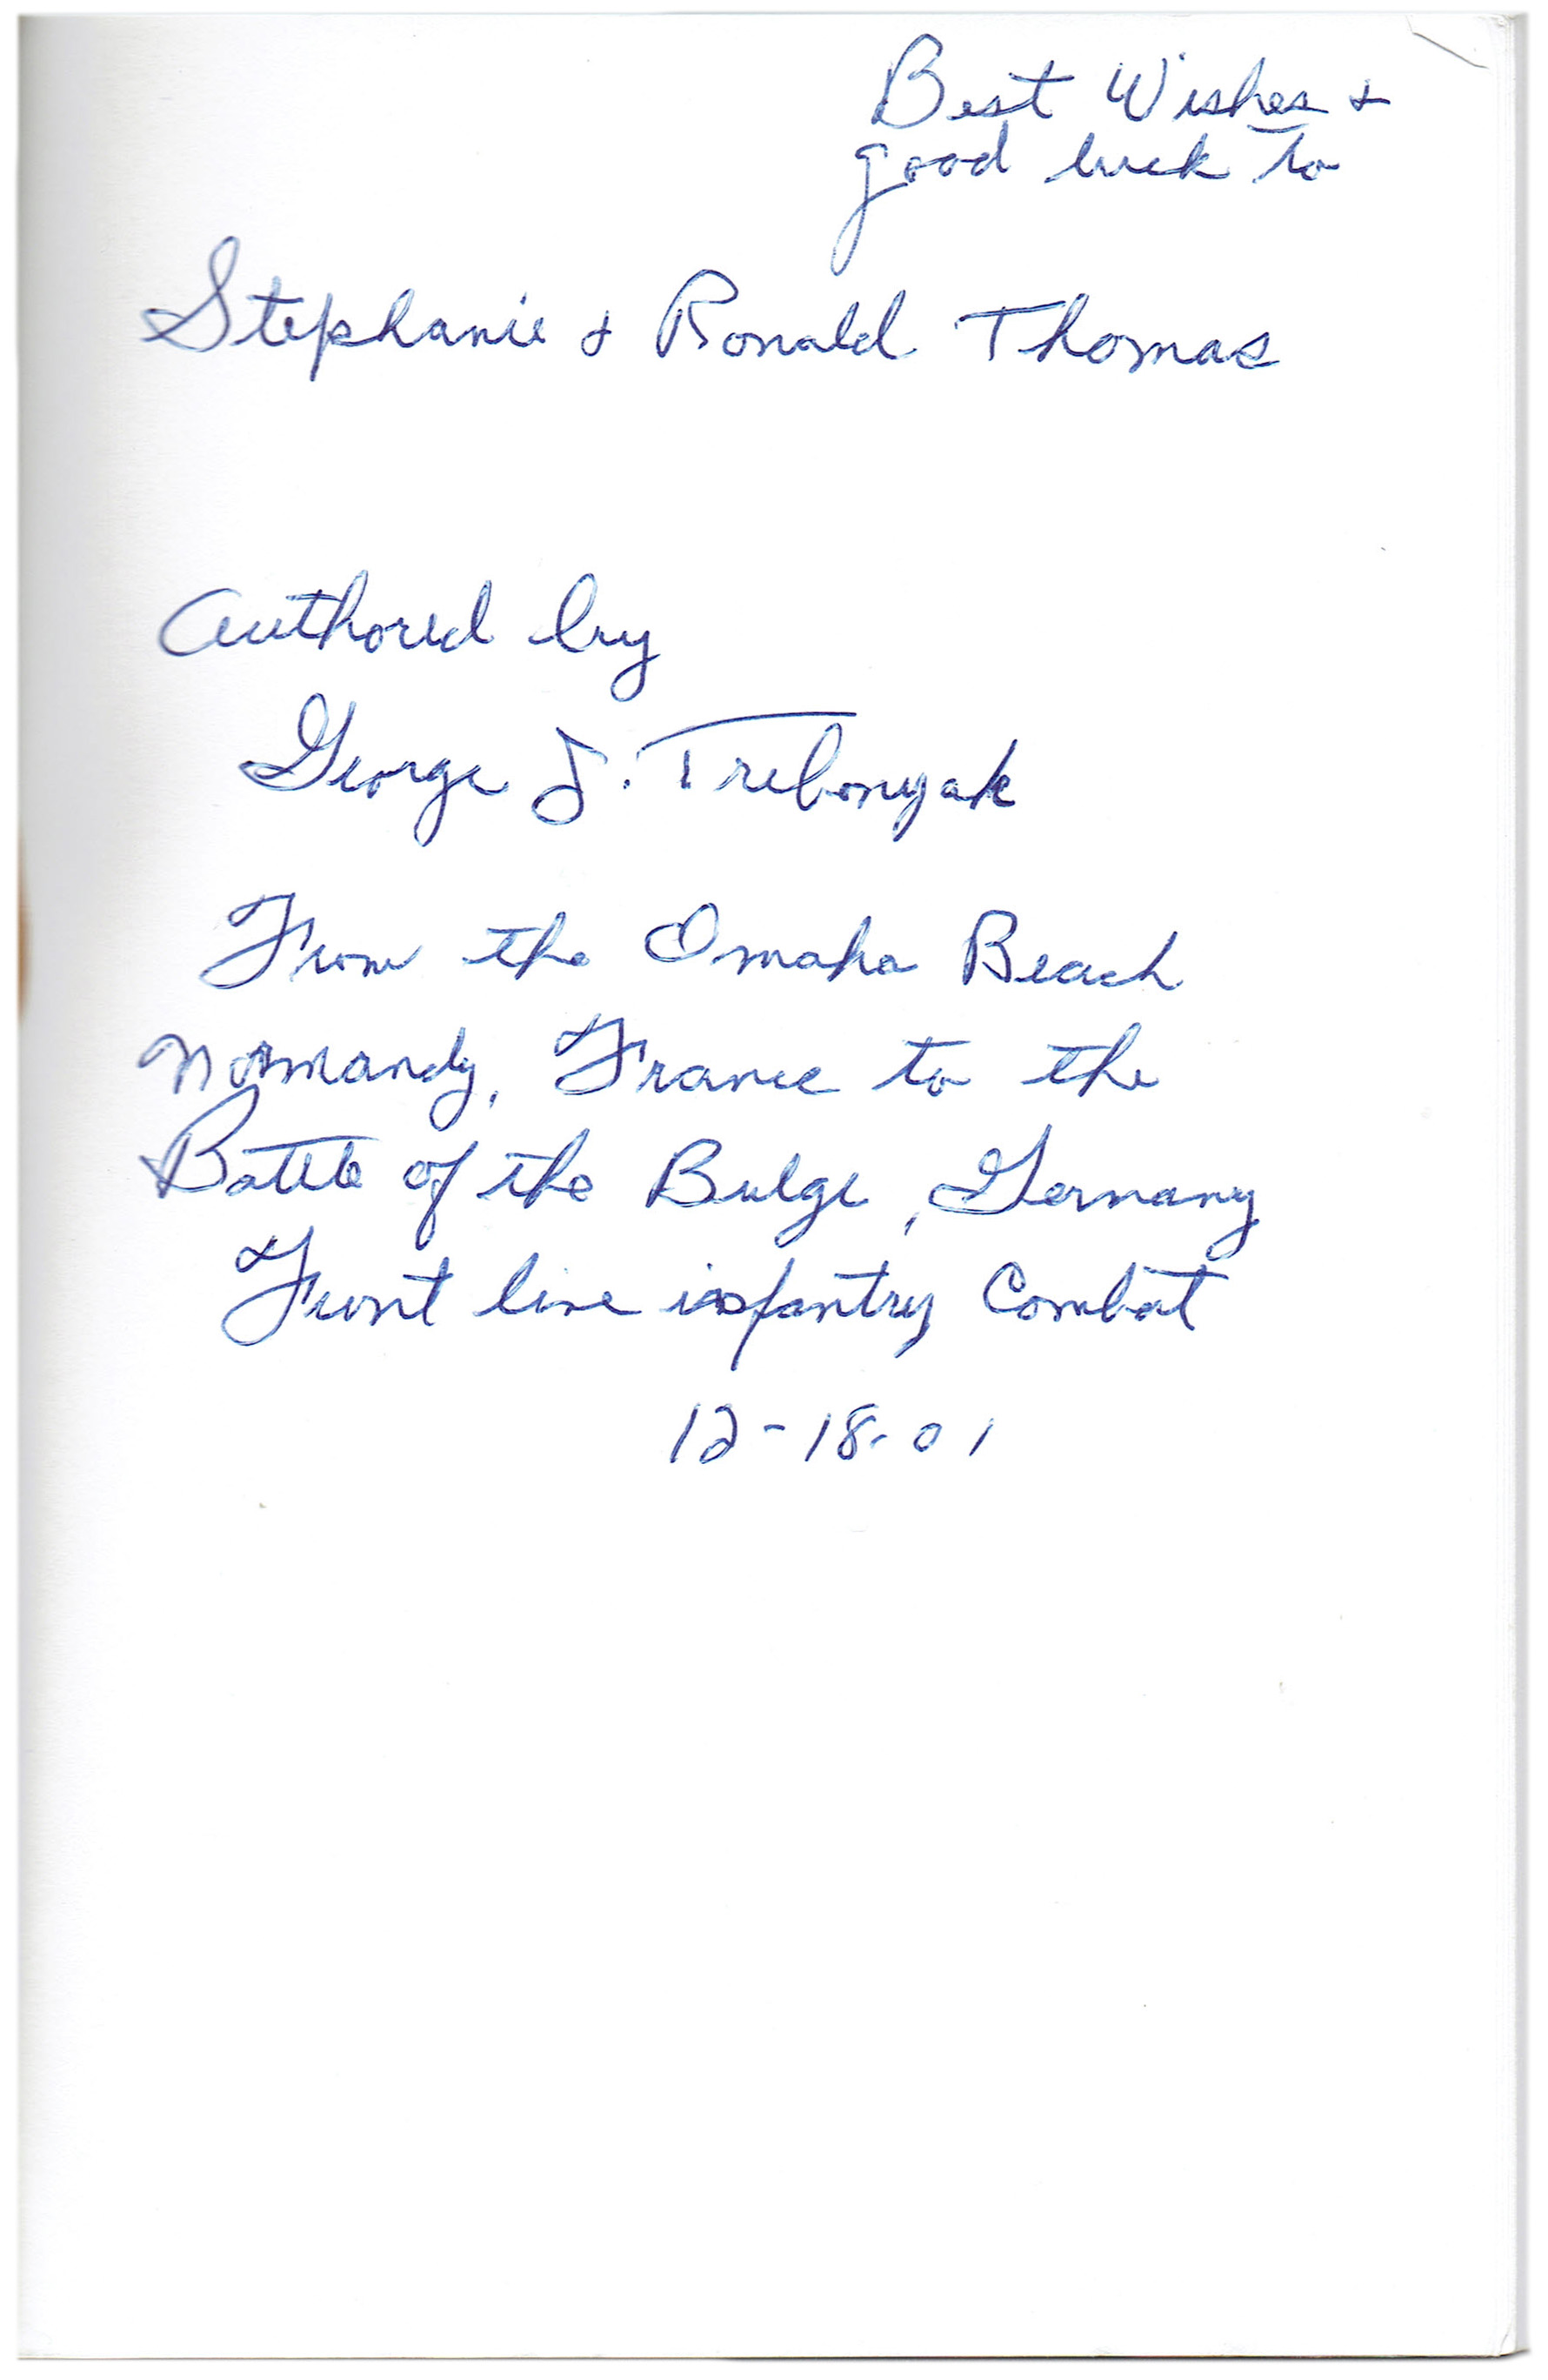 Best Wishes +
good luck to
Stephanie & Ronald Thomas
Authored by
George J. Trebonyak
From the Omaha Beach
Normandy, France to the
Battle of the Bulge, Germany
Front line infantry Combat
12-18-01